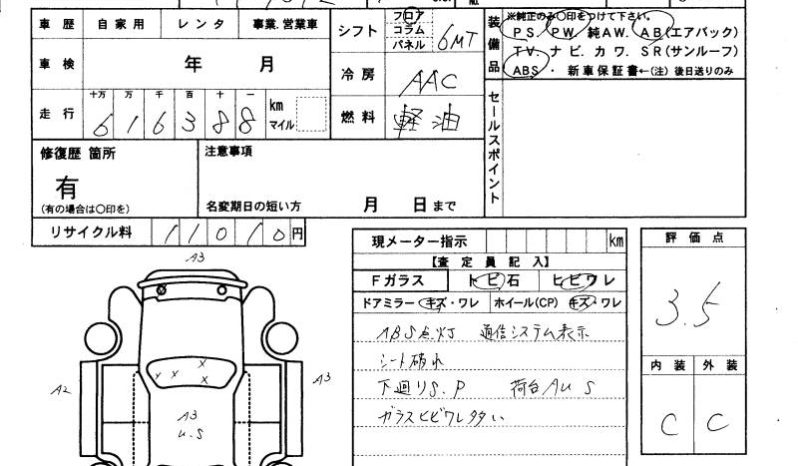 車 歴 自家用 レンタ 事業.営業車
シフト フロア コラム パネル 6MT
装備品 ※純正のみ○印をつけて下さい。
PS. PW. 純AW. AB(エアバック)
TV. ナビ. カワ. SR(サンルーフ)
ABS ・ 新車保証書←(注)後日送りのみ
車 検 年 月
冷 房 AAC
走 行 十万 万 千 百 十 一
616388 km マイル
燃 料 軽油
セールスポイント
修復歴 箇所
有
(有の場合は○印を)
注意事項
名変期日の短い方 月 日まで
リサイクル料 11010円
現メーター指示 km
【査 定 員 記 入】
Fガラス トビ石 ヒビワレ
ドアミラー キズ・ワレ ホイール(CP) キズ・ワレ
ABS点灯 通信システム表示
シート破れ
下廻りS.P 荷台AUS
ガラスヒビワレタタい
評 価 点
3.5
内 装 外 装
C C
A3
A2
A3
x x x x
A3
u.S